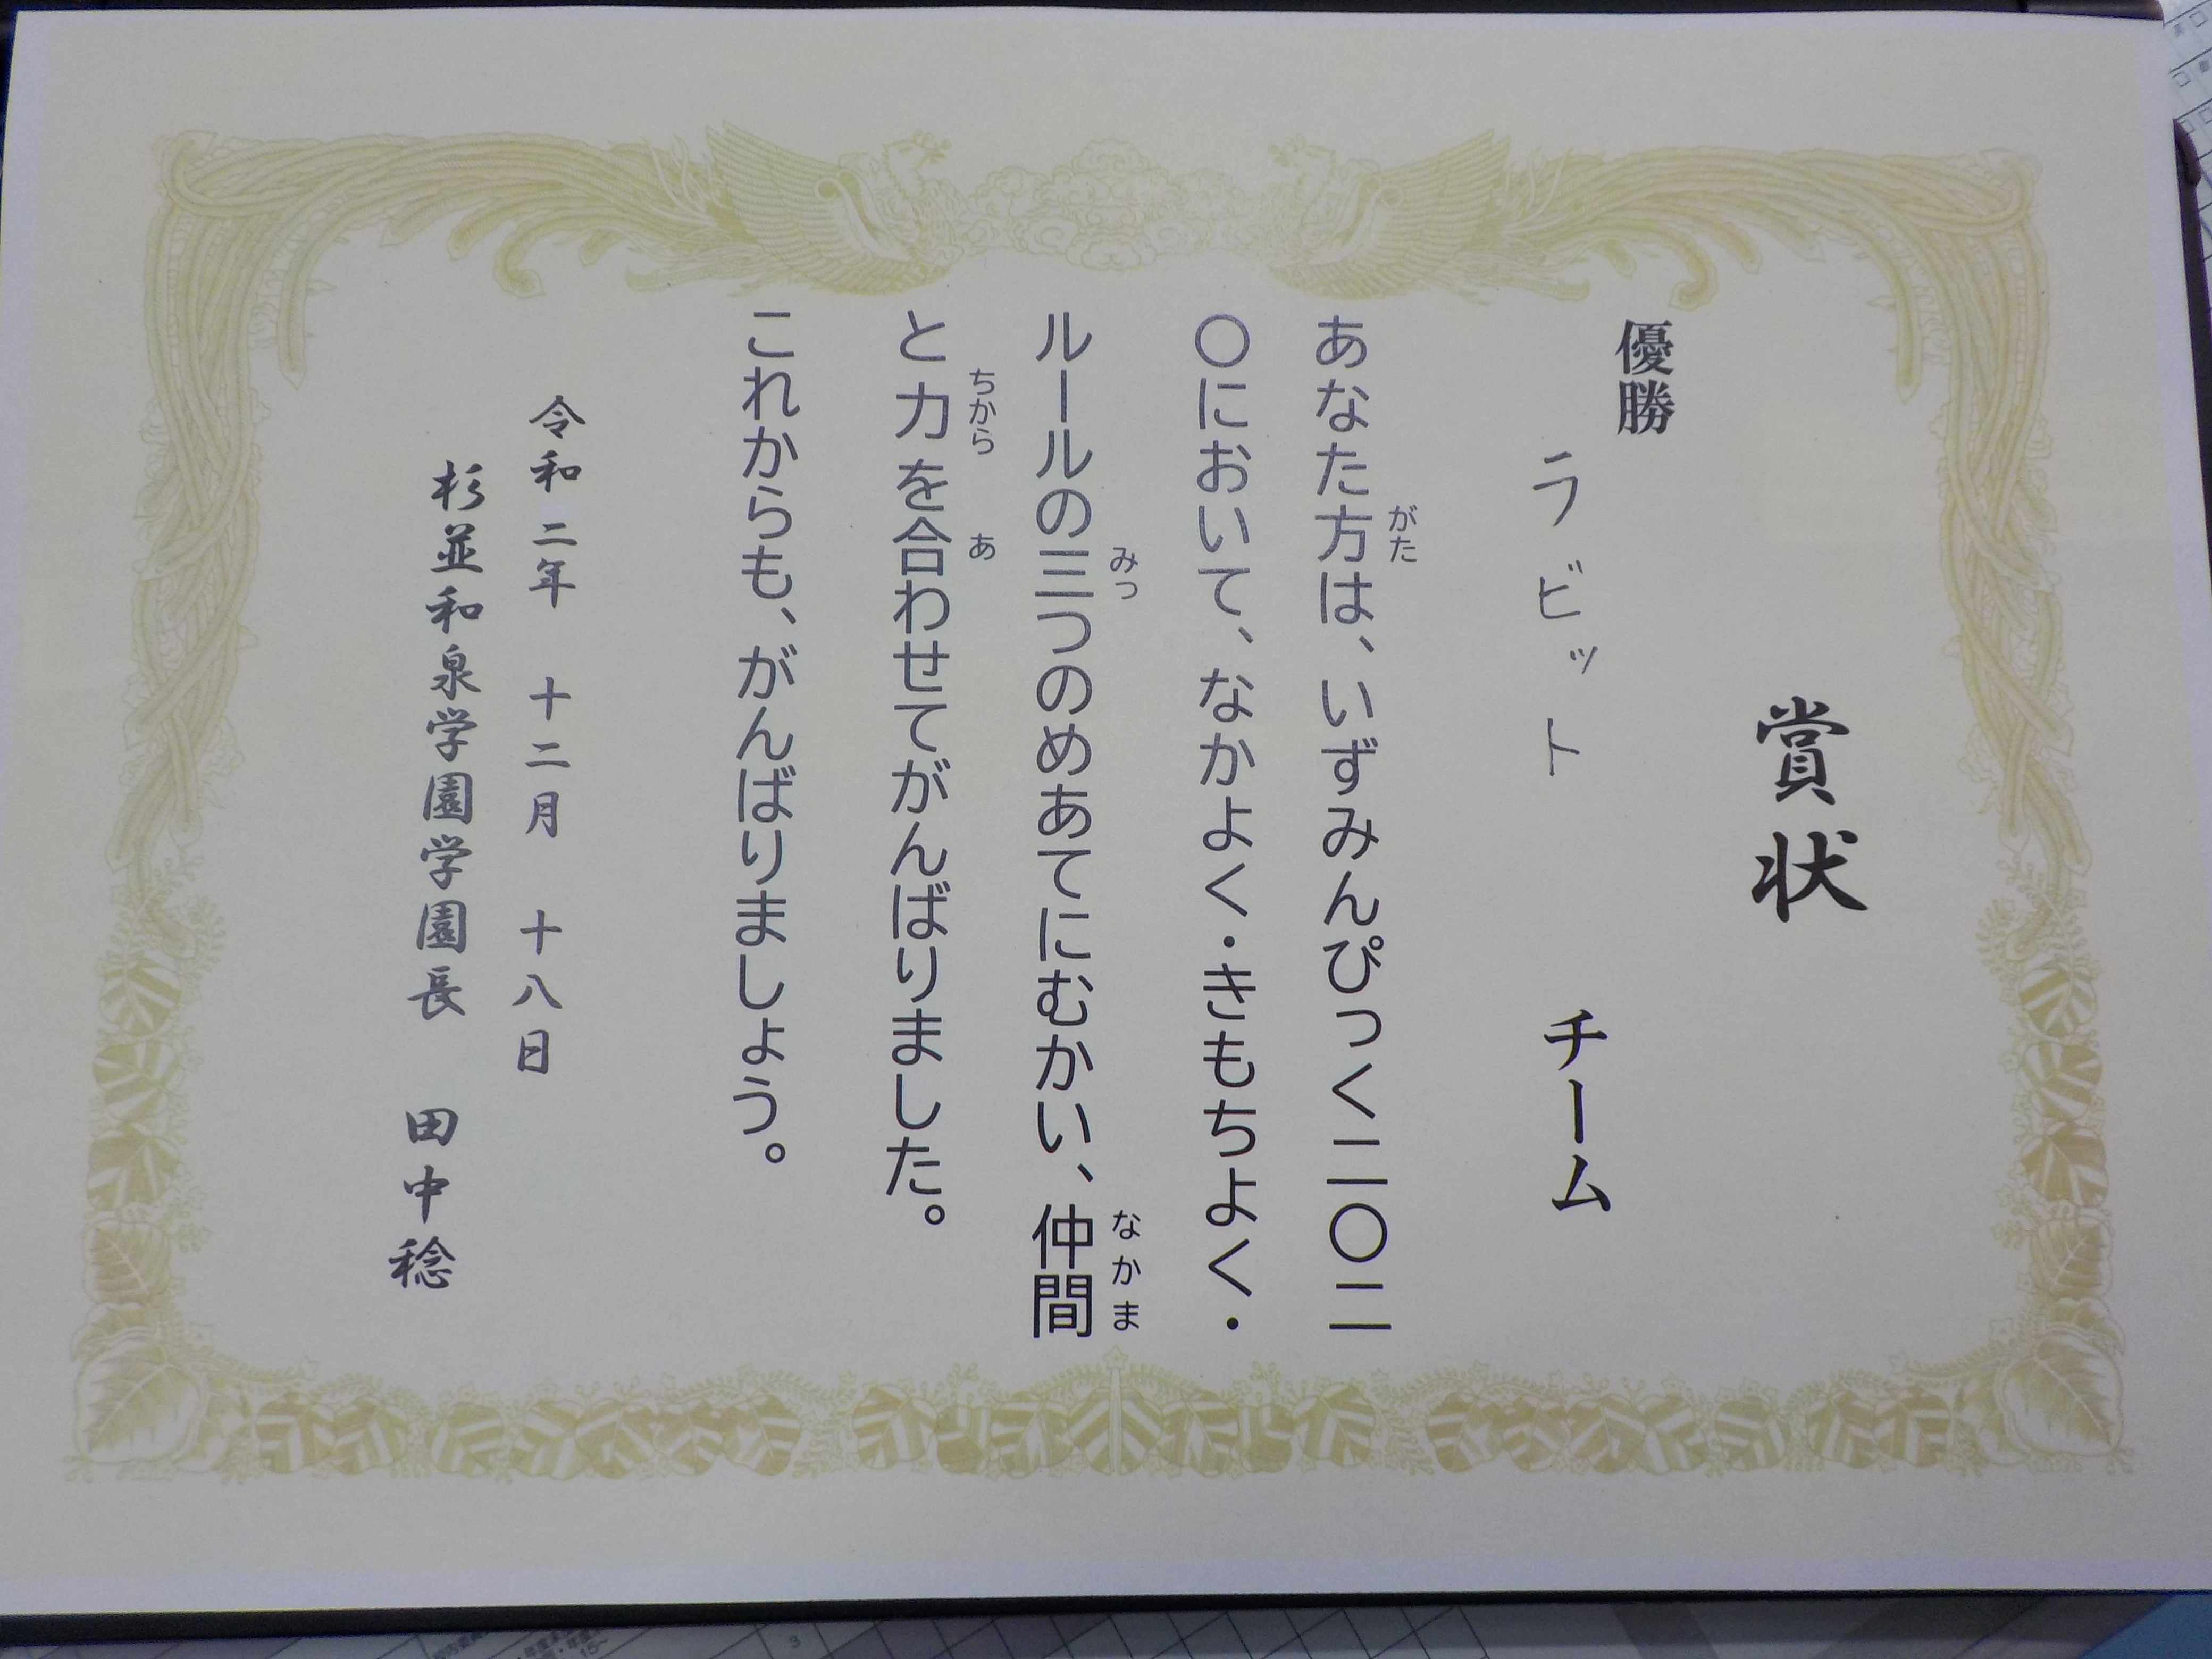 賞状
優勝
ラビット チーム
あなた方は、いずみんぴっく二〇二
がた
〇において、なかよく・きもちよく・
ルールの三つのめあてにむかい、仲間
みっ なかま
と力を合わせてがんばりました。
ちから あ
これからも、がんばりましょう。
令和二年 十二月 十八日
杉並和泉学園学園長 田中稔
3
15~